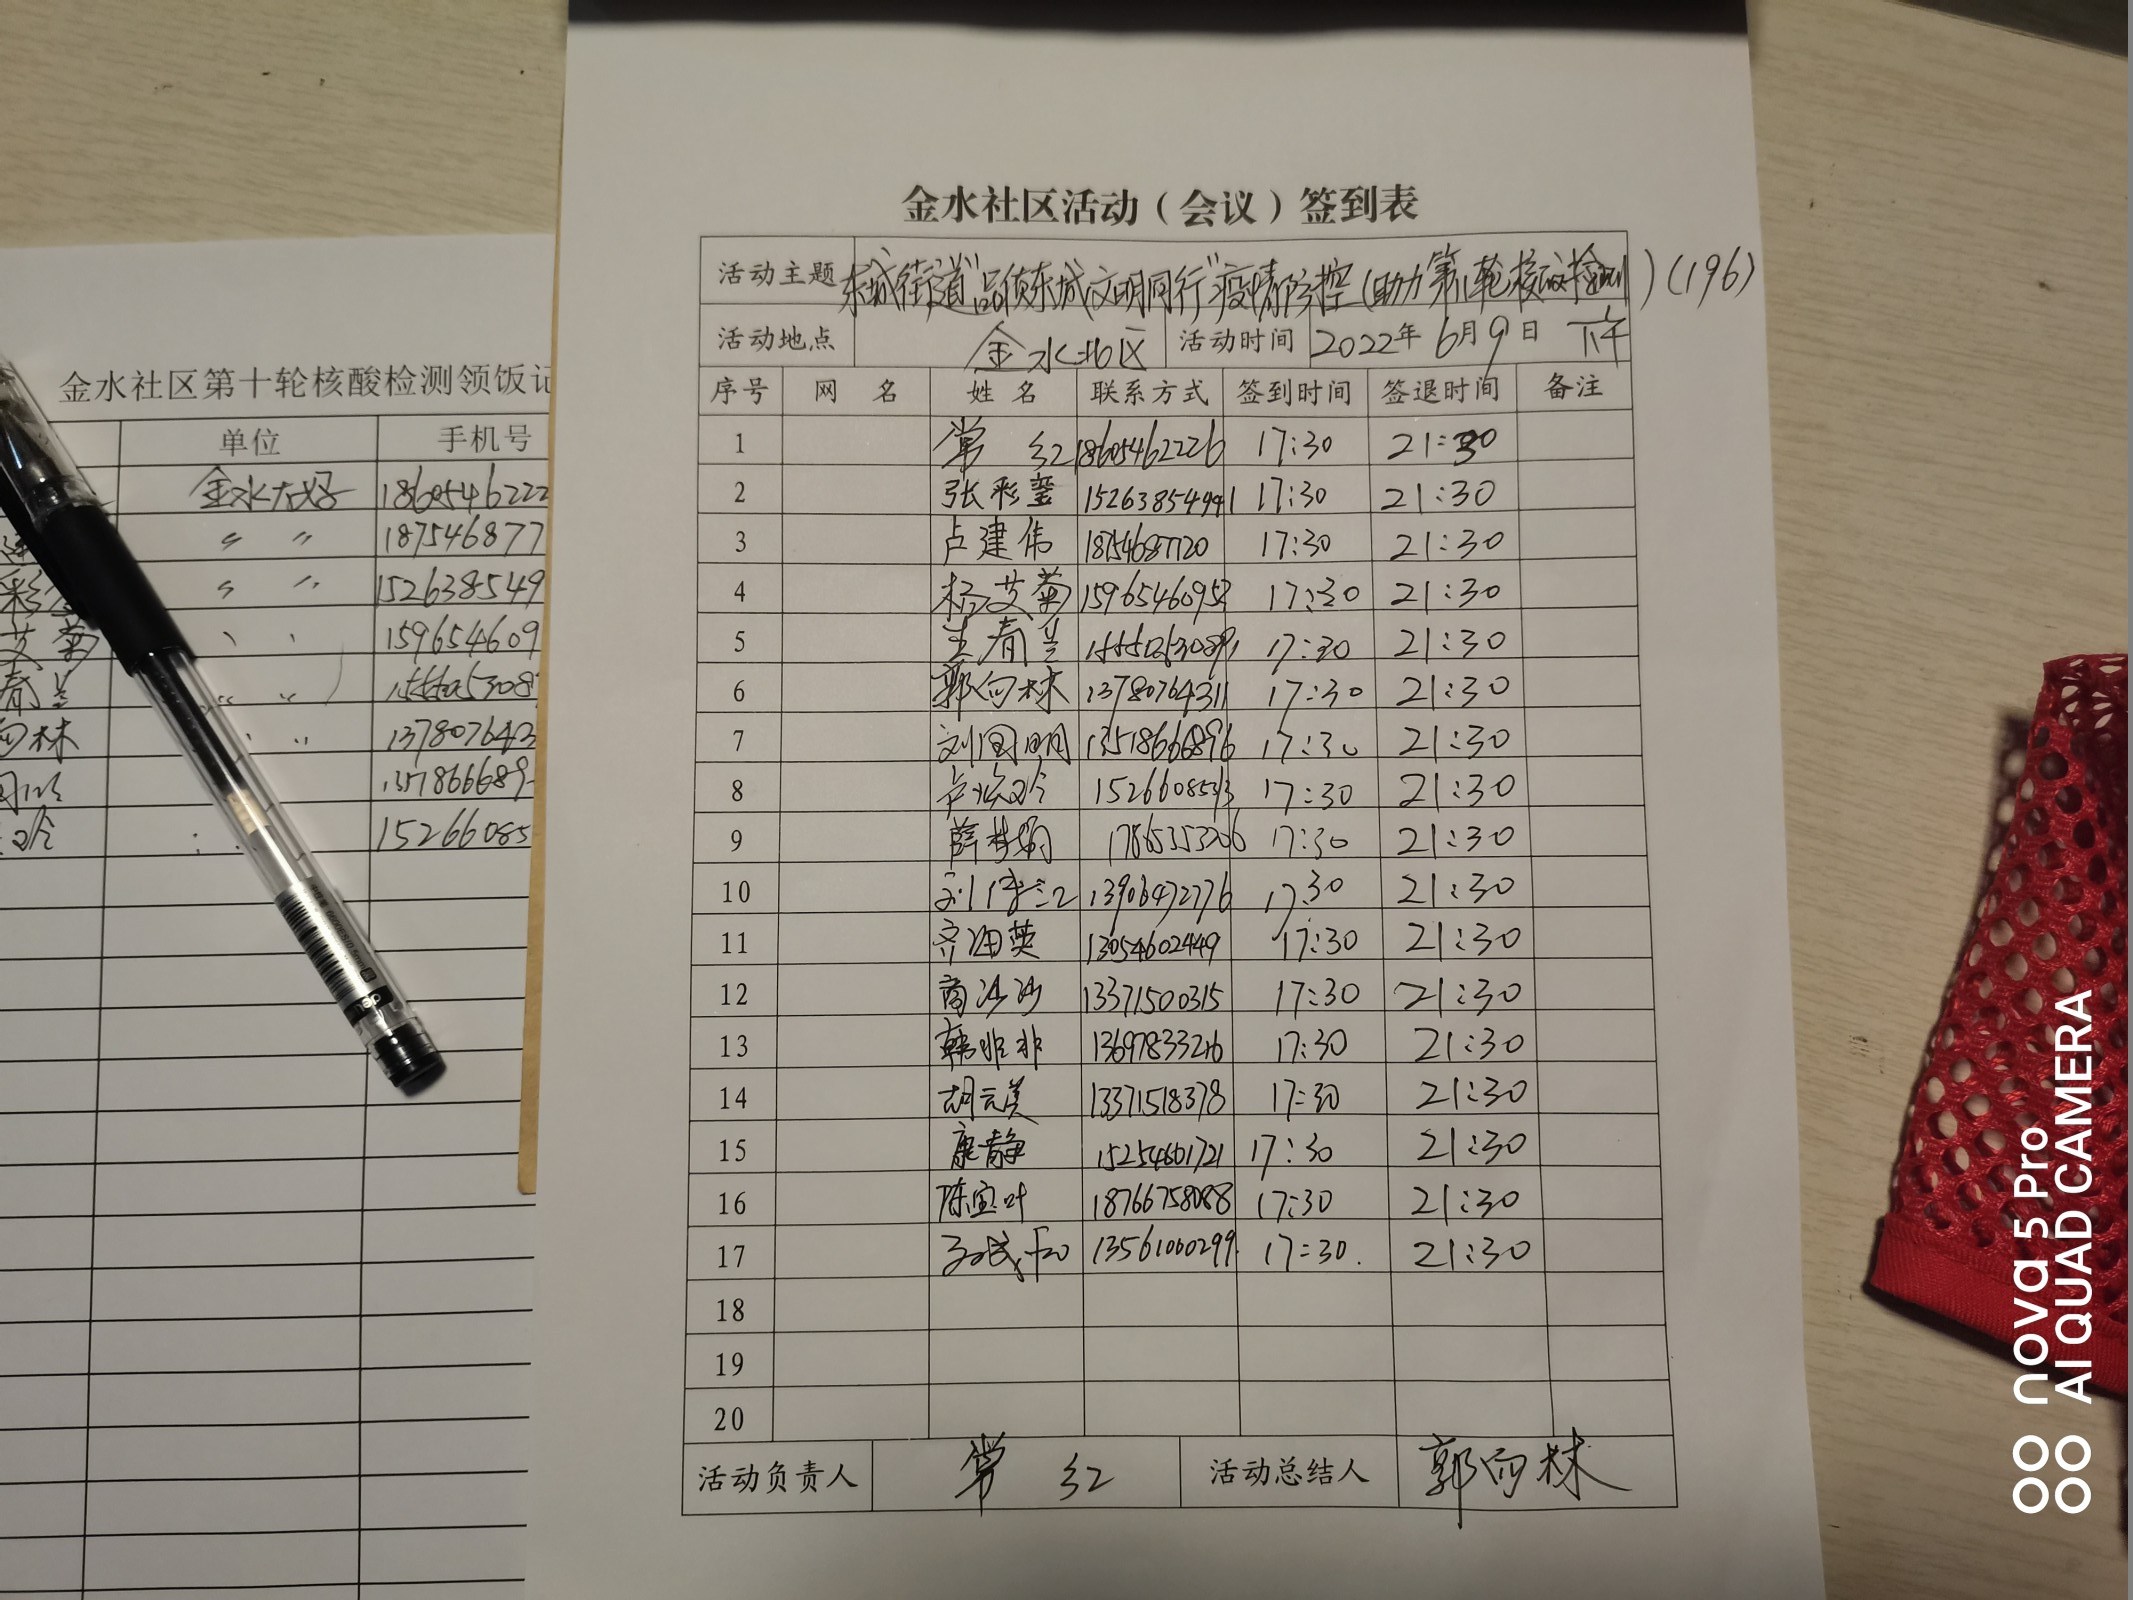 金水社区活动（会议）签到表
活动主题 东城街道"品质东城文明同行"疫情防控(助力第11轮核酸检测)(196)
活动地点 金水北区 活动时间 2022年6月9日 下午
序号 网 名 姓 名 联系方式 签到时间 签退时间 备注
1 常 红 18605462226 17:30 21:30
2 张彩莹 17:30 21:30
3 卢建伟 18754687720 17:30 21:30
4 杨艾菊 17:30 21:30
5 王春兰 17:30 21:30
6 郭向林 13780764311 17:30 21:30
7 刘国明 13518666896 17:30 21:30
8 17:30 21:30
9 薛梦娟 17865353206 17:30 21:30
10 13906472776 17:30 21:30
11 齐海英 13054602449 17:30 21:30
12 商沙沙 13371500315 17:30 21:30
13 韩非非 17:30 21:30
14 胡云美 13371518378 17:30 21:30
15 康静 15254661721 17:30 21:30
16 陈宝叶 18766758088 17:30 21:30
17 13561000299 17:30 21:30
18
19
20
活动负责人 常 红 活动总结人 郭向林
金水社区第十轮核酸检测领饭记
单位 手机号
金水大好 1860546222
〃 〃 187546877
彩 〃 〃 152638549
艾菊 159654609
春兰 〃
向林 〃 137807643
〃
15266085
nova 5 Pro
AI QUAD CAMERA